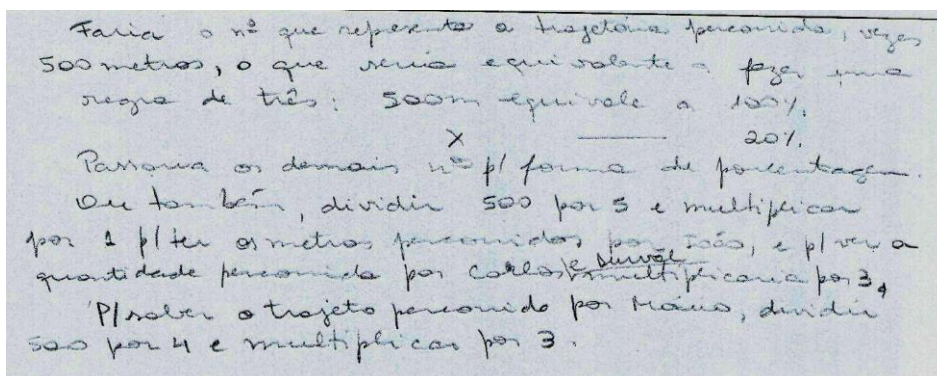 Faria o nº que representa a trajetória percorrida, vezes
500 metros, o que seria equivalente a fazer uma
regra de três: 500m equivale a 100%.
X —— 20%.
Passaria os demais nºs p/ forma de porcentagem.
Ou também, dividir 500 por 5 e multiplicar
por 1 p/ ter os metros percorridos por João, e p/ ver a
quantidade percorrida por Carlos e Durval multiplicaria por 3,
P/ saber o trajeto percorrido por Mário, dividir
500 por 4 e multiplicar por 3.